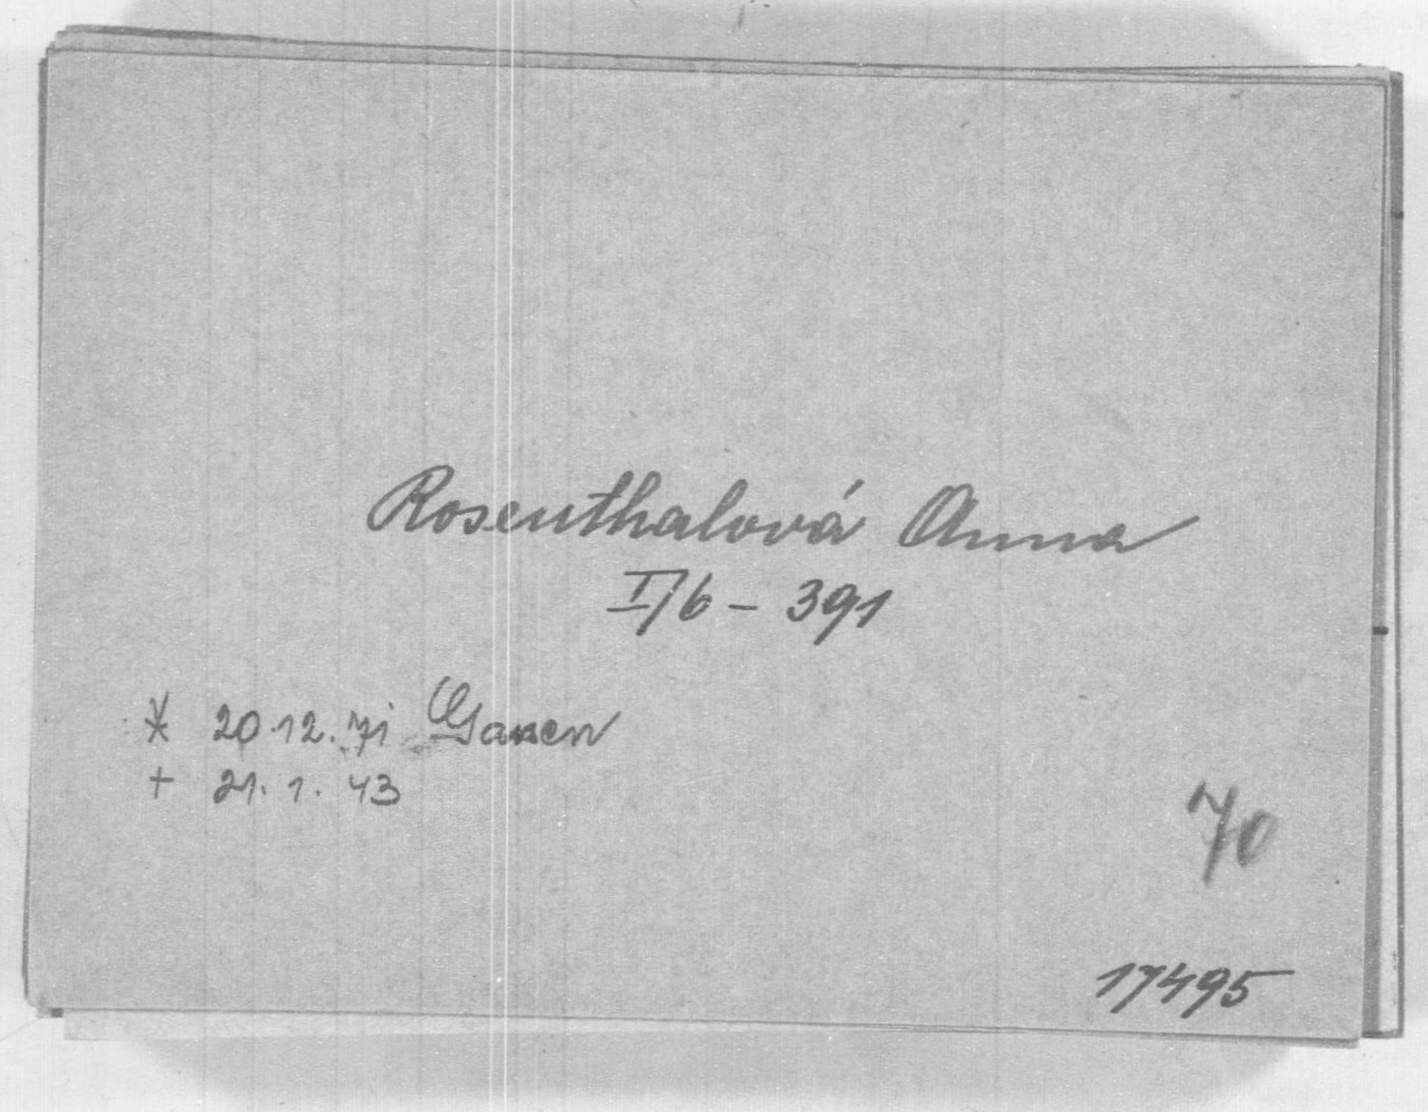 Rosenthalová Anna
I/6 - 391
* 20.12.71
+ 21. 1. 43
70
17495